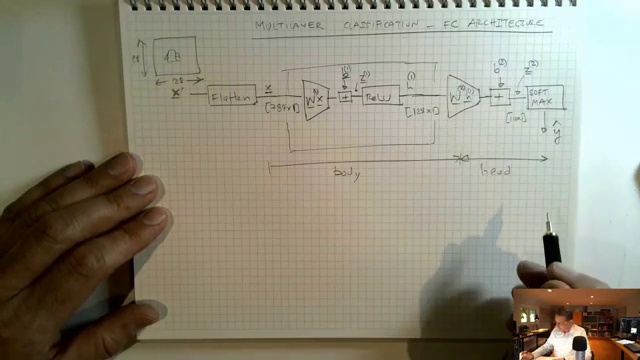 MULTILAYER CLASSIFICATION - FC ARCHITECTURE
28
28
x'
Flatten
x
[784x1]
W(1) x
b(1)
+
z(1)
ReLU
h(1)
[128x1]
W(2) h(1)
b(2)
+
z(2)
SOFT
MAX
ŷ
body
head